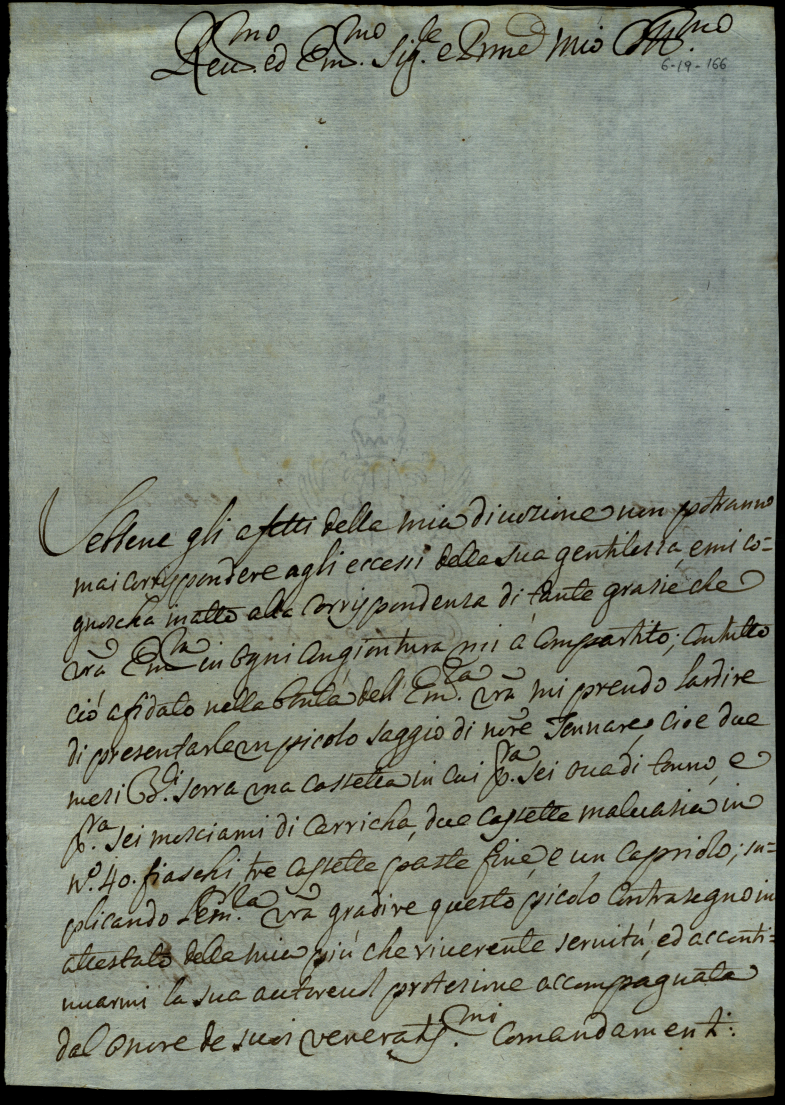 Reu.mo ed Em.mo Sig.le e Prone Mio
6-19-166
Sebbene gli afetti della mia diuozione non potranno
mai corrispondere agli eccessi della sua gentilessa, e mi co=
gnoscha inatto alla corrispondensa di tante grasie che
vrã Em.za in ogni congiontura mi à compartito; contutto
ció afidato nella bontá dell' Em.za vrã mi prendo lardire
di presentarle un picolo saggio di nõre Tonnare, cioe due
mesi serra una cassetta in cui p.ra sei oua di tonno, e
p.ra sei mosciami di carricha, due cassette maluasia in
N.o 40. fiaschi tre cassette paste fine, e un capriolo; su=
plicando L'em.za vrã gradire questo picolo contrasegno in
attestato della mia piú che riuerente seruitú, ed acconti=
nuarmi la sua autoreuol protesione accompagnata
dal onore de suoi veneratis.mi Comandamenti: